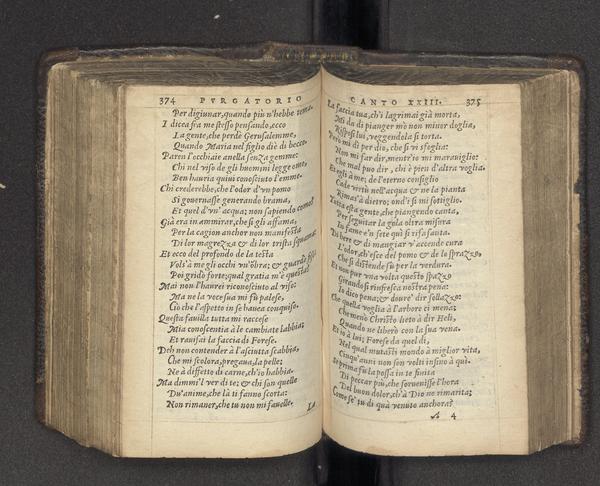 374 PVRGATORIO
Per digiunar, quando più n'hebbe tema.
I dicea fra me stesso pensando, ecco
La gente, che perdè Gerusalemme,
Quando Maria nel figlio diè di becco.
Parean l'occhiaie anella senza gemme:
Chi nel viso de gli huomini legge omo,
Ben hauria quiui conosciuto l'emme.
Chi crederebbe, che l'odor d'vn pomo
Si gouernasse generando brama,
Et quel d'vn'acqua; non sapiendo como?
Già era in ammirar, che sì gli affama,
Per la cagion anchor non manifesta
Di lor magrezza & di lor trista squama:
Et ecco del profondo de la testa
Vols'à me gli occhi vn'ōbra; & guardò fiso
Poi gridò forte; qual gratia m'è questa?
Mai non l'haurei riconosciuto al viso:
Ma ne la voce sua mi fù palese,
Ciò che l'aspetto in se hauea conquiso.
Questa fauilla tutta mi raccese
Mia conoscentia à le cambiate labbia;
Et rauisai la faccia di Forese.
Deh non contender à l'asciutta scabbia,
Che mi scolora, pregaua, la pelle;
Ne à diffetto di carne, ch'io habbia.
Ma dimmi'l ver di te; & chi son quelle
Du'anime, che là ti fanno scorta:
Non rimaner, che tu non mi fauelle.
La
CANTO XXIII. 375
La faccia tua, ch'i lagrimai già morta,
Mi dà di pianger mò non minor doglia,
Rispos'i lui, veggendola sì torta.
Però mi dì per dio, che sì vi sfoglia:
Non mi far dir, mentr'io mi marauiglio:
Che mal puo dir, chi è pien d'altra voglia.
Et egli à me; de l'eterno consiglio
Cade virtù nell'acqua & ne la pianta
Rimas'à dietro; ond'i sì mi sottiglio.
Tutta esta gente, che piangendo canta,
Per seguitar la gola oltra misura
In fame e'n sete quì si rifà santa.
Di bere & di mangiar v'accende cura
L'odor, ch'esce del pomo & de lo sprazzo,
Che si distende sù per la verdura.
Et non pur vna volta questo spazzo
Girando si rinfresca nostra pena:
Io dico pena; & doure' dir sollazzo:
Che quella voglia à l'arbore ci mena;
Che menò Christo lieto à dir Heli,
Quando ne liberò con la sua vena.
Et io à lui; Forese da quel dì,
Nel qual mutasti mondo à miglior vita,
Cinqu'anni non son volti insino à quì.
Se prima fù la possa in te finita
Di peccar più, che soruenisse l'hora
Del buon dolor, ch'à Dio ne rimarita;
Come se' tu di quà venuto anchora?
A 4